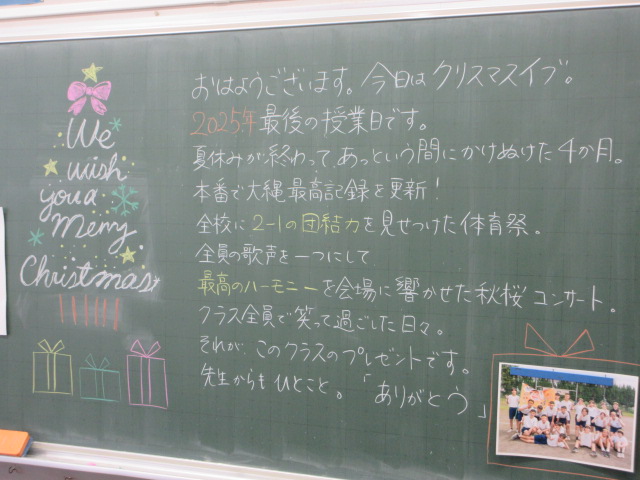 We
wish
you a
Merry
Christmas
おはようございます。今日はクリスマスイブ。
2025年最後の授業日です。
夏休みが終わって、あっという間にかけぬけた4か月。
本番で大縄最高記録を更新！
全校に2-1の団結力を見せつけた体育祭。
全員の歌声を一つにして
最高のハーモニーを会場に響かせた秋桜コンサート。
クラス全員で笑って過ごした日々。
それが、このクラスのプレゼントです。
先生からもひとこと。「ありがとう」